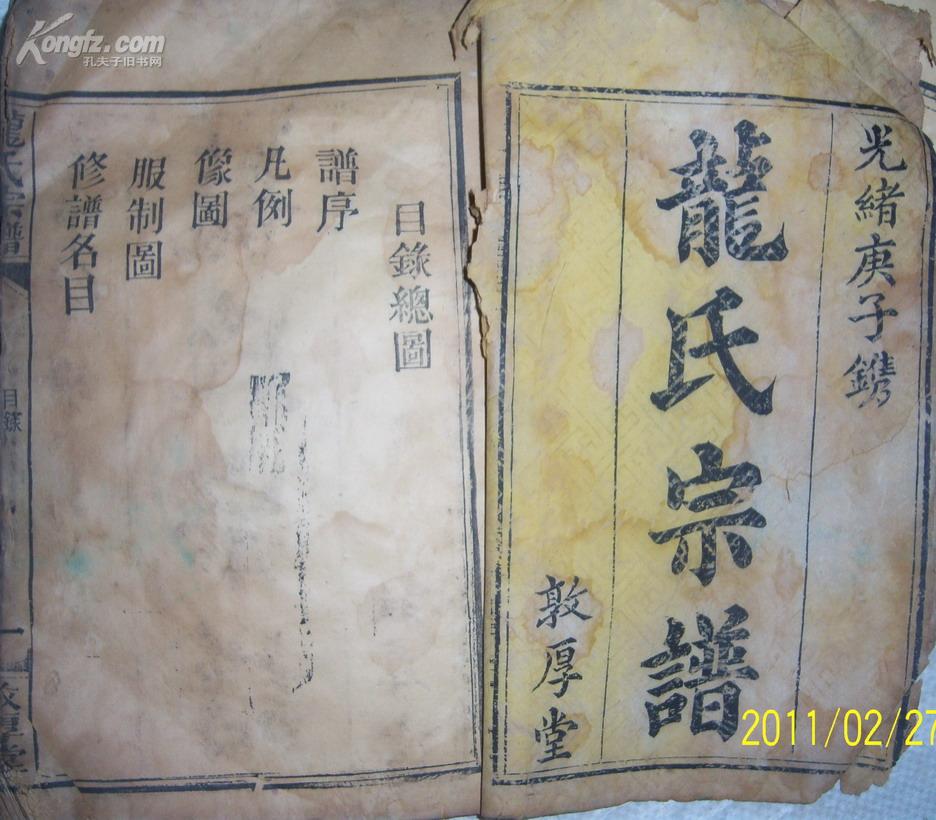 Kongfz.com
孔夫子旧书网
光緒庚子鐫
龍氏宗譜
敦厚堂
目錄總圖
譜序
凡例
像圖
服制圖
修譜名目
龍氏宗譜
目錄
一
敦厚堂
2011/02/27